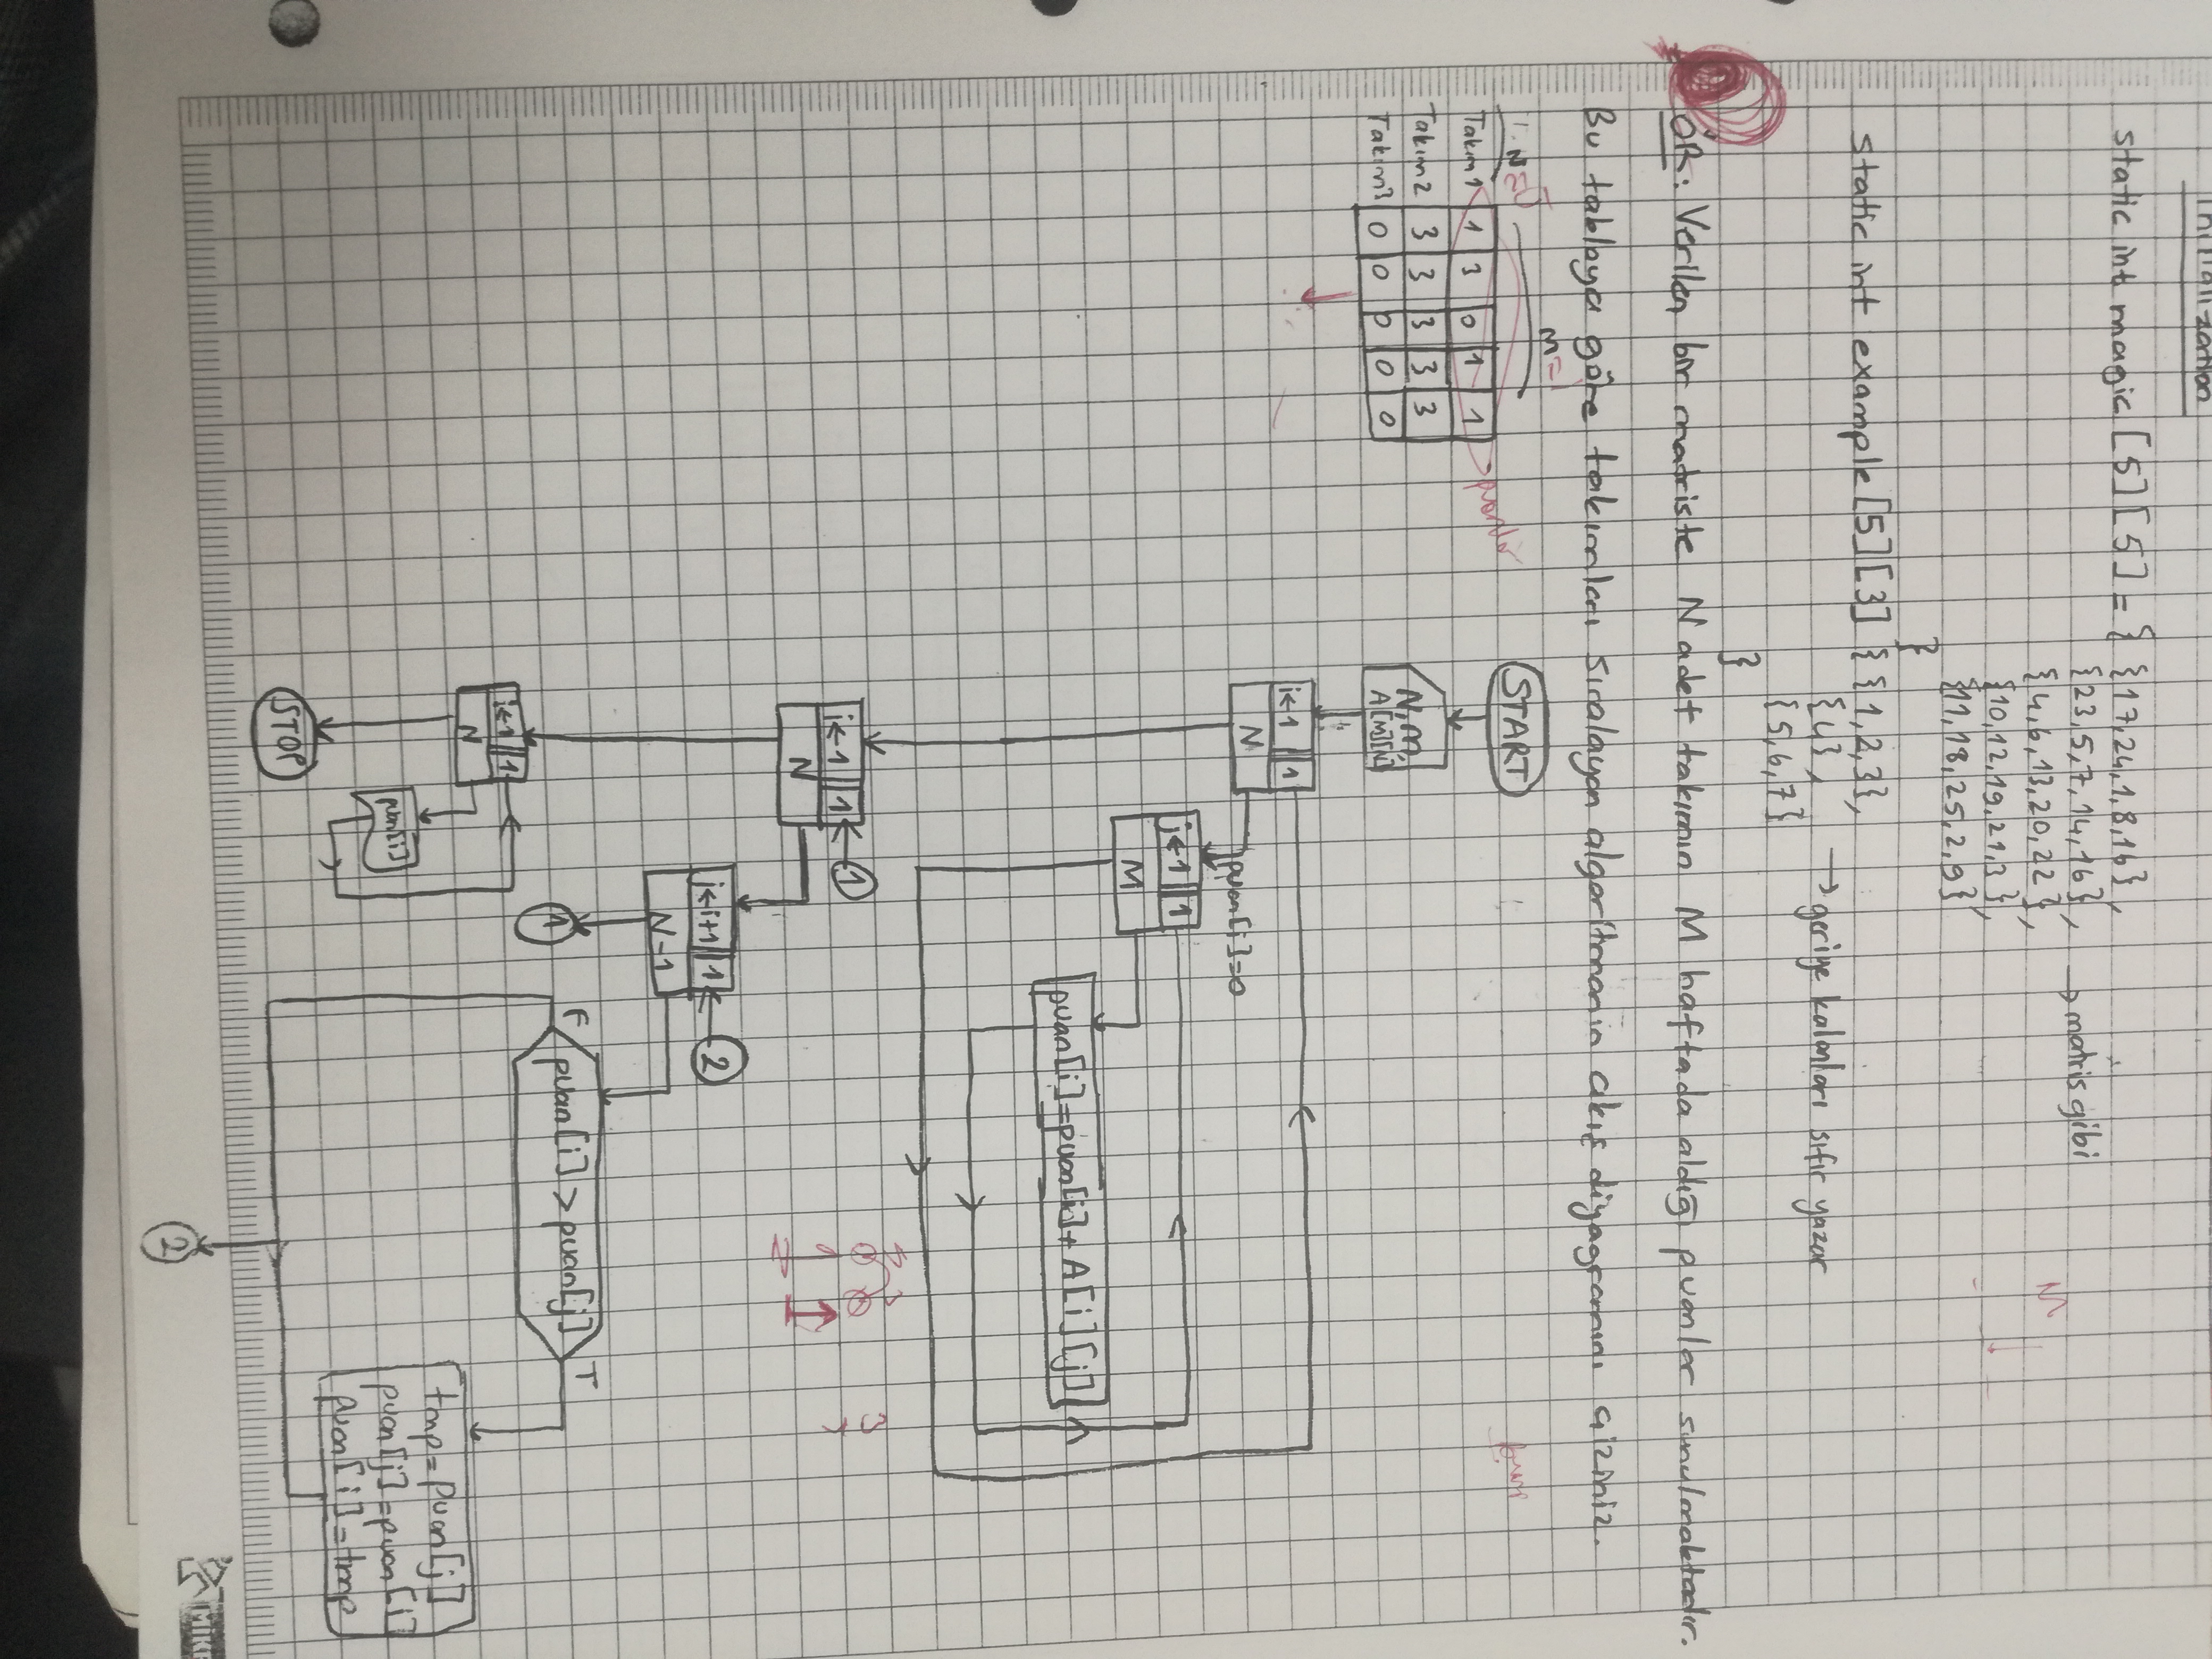 Initialization
static int magic [5][5] = { {17,24,1,8,16},
{23,5,7,14,16}, → matris gibi
{4,6,13,20,22},
{10,12,19,21,3},
{11,18,25,2,9}
}
static int example[5][3] { {1,2,3},
{4}, → geriye kalanları sıfır yazar
{5,6,7}
}
ÖR: Verilen bir matriste N adet takımın M haftada aldığı puanlar sunulmaktadır.
Bu tabloya göre takımları sıralayan algoritmanın akış diyagramını çiziniz.
M=
N
Takım1 1 3 0 1 1
Takım2 3 3 3 3 3
Takım3 0 0 0 0 0
START
N,M,
A[M][N]
i←1 1
N
puan[i]=0
j←1 1
M
puan[i]=puan[i]+A[i][j]
i←1 1 ←①
N
j←i+1 1 ←②
N-1
①
F puan[i]>puan[j] T
tmp=puan[j]
puan[j]=puan[i]
puan[i]=tmp
②
i←1 1
N
puan[i]
STOP